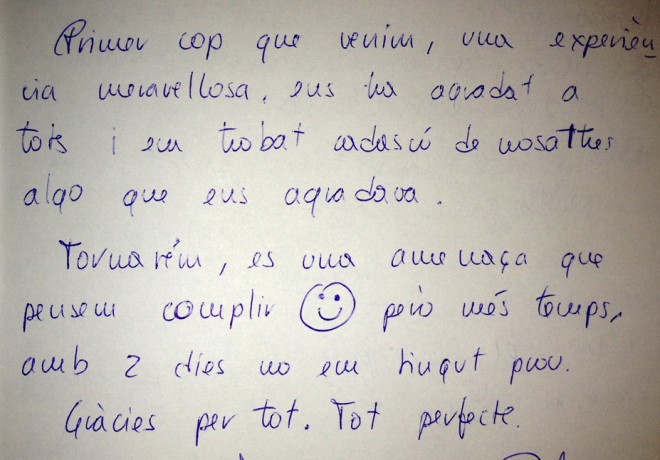 Primer cop que venim, una experièn
cia meravellosa, ens ha agradat a
tots i em trobat cadascú de nosaltres
algo que ens agradava.
Tornarém, es una amenaça que
pensem complir ☺ però més temps,
amb 2 dies no em tingut prou.
Gràcies per tot. Tot perfecte.